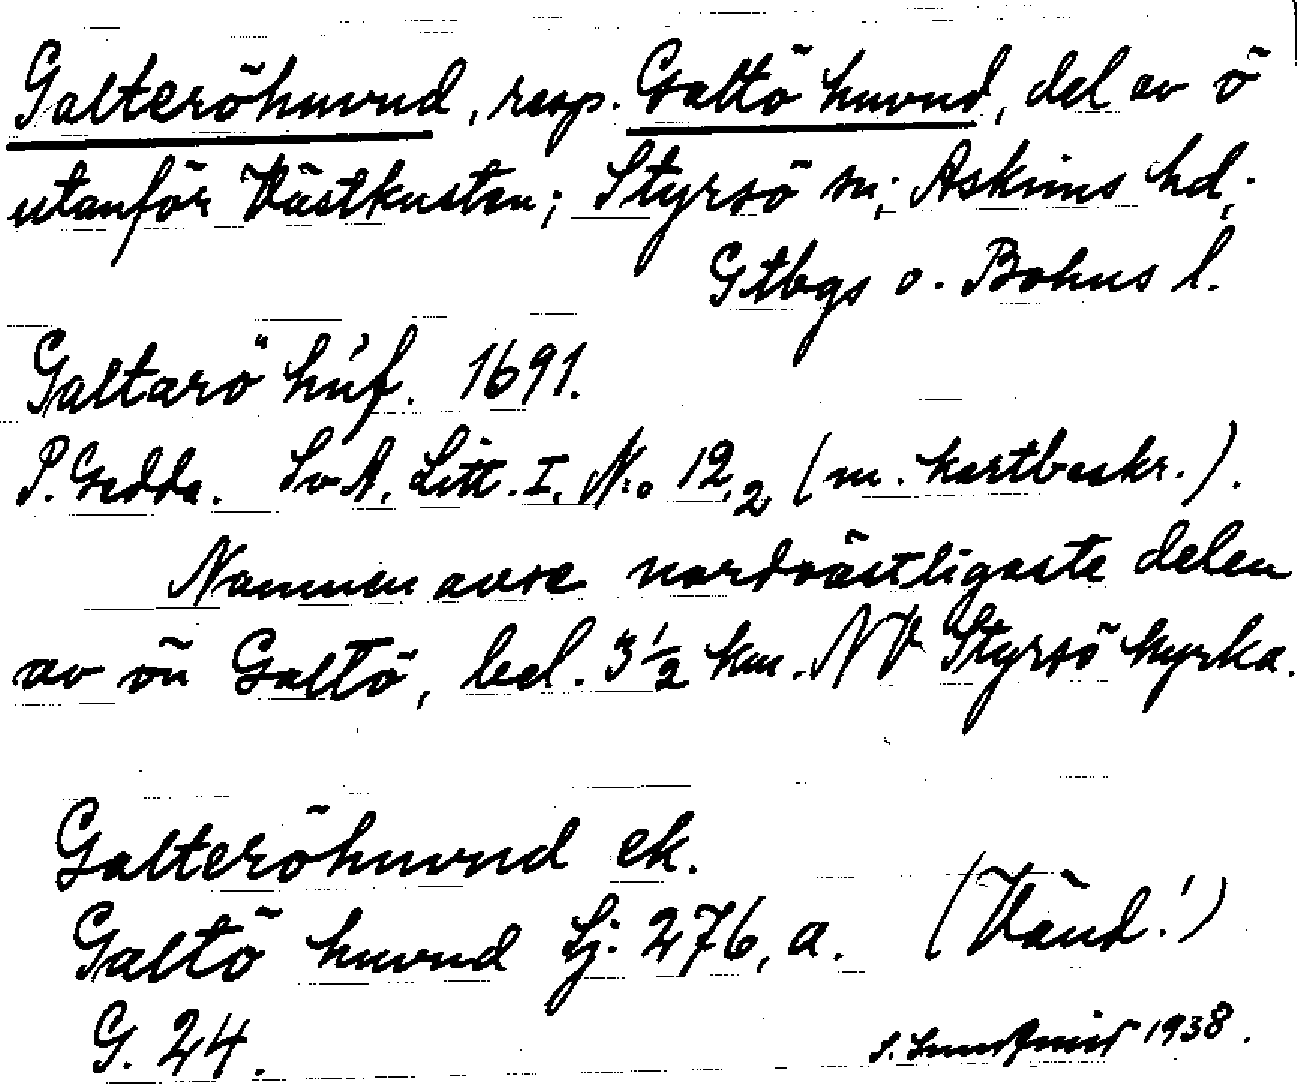 Galteröhuvud, resp. Galtö huvud, del av ö
utanför Västkusten; Styrsö sn; Askims hd;
Gtbgs o. Bohus l.
Galtarö húf. 1691.
P. Gedda. SvA. Litt. I. N:o 12,2 (m. kartbeskr.).
Namnen avse nordvästligaste delen
av ön Galtö, bel. 3 1/2 km. NV Styrsö kyrka.
Galteröhuvud ek.
Galtö huvud Sj. 276, a. (Vänd!)
G. 24.
1938.